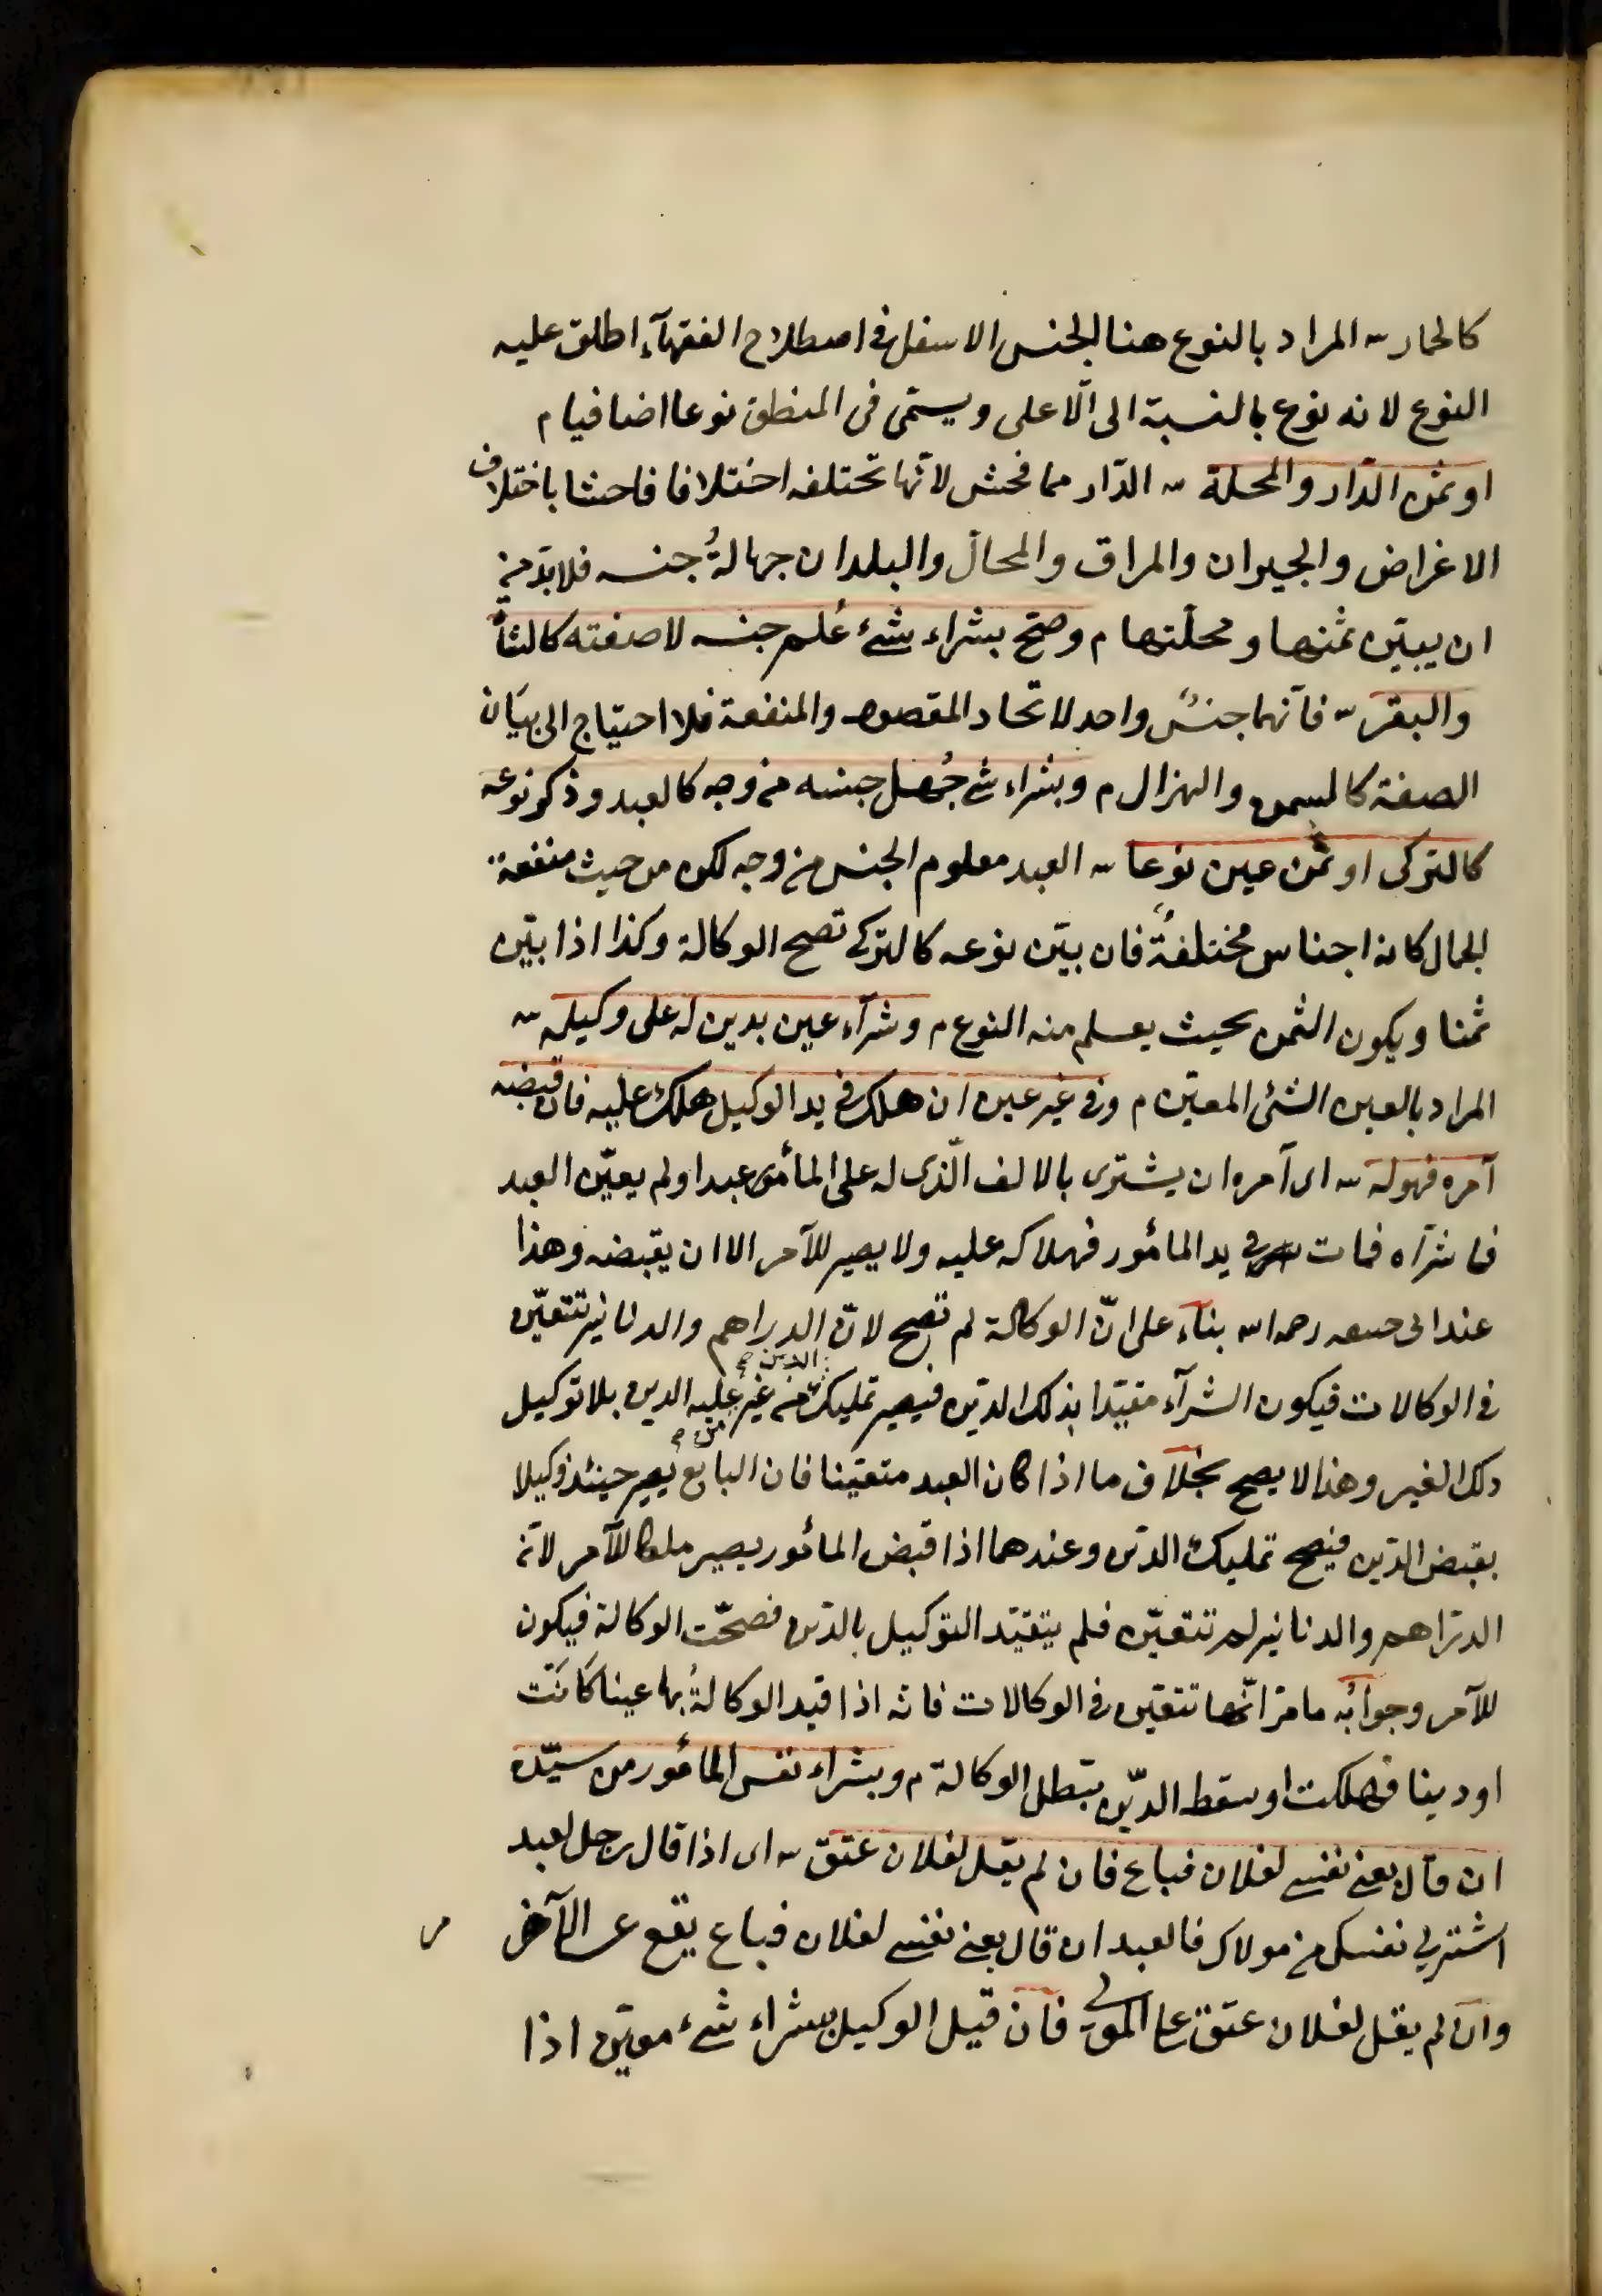 كالحمار ش المراد بالنوع هنا الجنس الاسفل في اصطلاح الفقهآء اطلق عليه
النوع لانه نوع بالنسبة الى الاعلى ويسمّى فى المنطق نوعا اضافيا م
او ثمن الدّار والمحلة ش الدّار مما فحش لانّها تختلف اختلافا فاحشا باختلاف
الاغراض والجيران والمرافق والمحالّ والبلدان جهالةُ جنسه فلابدّ من
ان يبيّن ثمنها ومحلّتها م وصحّ بشراء شئ عُلم جنسه لا صفته كالشاة
والبقر ش فانّهما جنسٌ واحد لاتحاد المقصود والمنفعة فلا احتياج الى بيان
الصفة كالسمن والهزال م وبشراء شئ جُهل جنسه من وجه كالعبد وذكر نوعه
كالتركى او ثمن عين نوعا ش العبد معلوم الجنس من وجه لكن من حيث منفعة
الجمال كانه اجناس مختلفةٌ فان بيّن نوعه كالتركى تصح الوكالة وكذا اذا بيّن
ثمنا ويكون الثمن بحيث يعلم منه النوع م وشرآء عين بدين له على وكيله ش
المراد بالعين الشئ المعيّن م وفى غير عين ان هلك في يد الوكيل هلك عليه فان قبضه
آمره فهو له ش اى آمره ان يشترى بالالف الّذى له على المأمور عبدا ولم يعيّن العبد
فاشتراه فمات في يد المأمور فهلاكه عليه ولا يصير للآمر الا ان يقبضه وهذا
عند ابى حنيفه رحمه الله بناء على انّ الوكالة لم تصح لانّ الدراهم والدنانير تتعيّن
في الوكالات فيكون الشرآء مقيّدا بذلك الدّين فيصير تمليك الدين من غير من عليه الدين بلا توكيل
ذلك الغير وهذا لا يصح بخلاف ما اذا كان العبد متعيّنا فان البايع يصير حينئذ وكيلا
بقبض الدّين فيصح تمليك الدّين وعندهما اذا قبض المأمور يصير ملكا للآمر لانّ
الدرّاهم والدنانير لم تتعيّن فلم يتقيّد التوكيل بالدّين فصحّت الوكالة فيكون
للآمر وجوابُه ما مرّ انّها تتعيّن في الوكالات فانه اذا قيد الوكالةُ بها عينا كانَت
او دينا فهلكت او سقط الدّين بتطل الوكالة م وبشراء نفس المأمور من سيّده
ان قال بعنى نفسى لفلان فباع فان لم يقل لفلان عتق ش اى اذا قال رجل لعبد
اشتر لى نفسك من مولاك فالعبد ان قال بعنى نفسى لفلان فباع يقع عن الآمر
وان لم يقل لفلان عتق على المولى فان قيل الوكيل بشراء شئ معيّن اذا